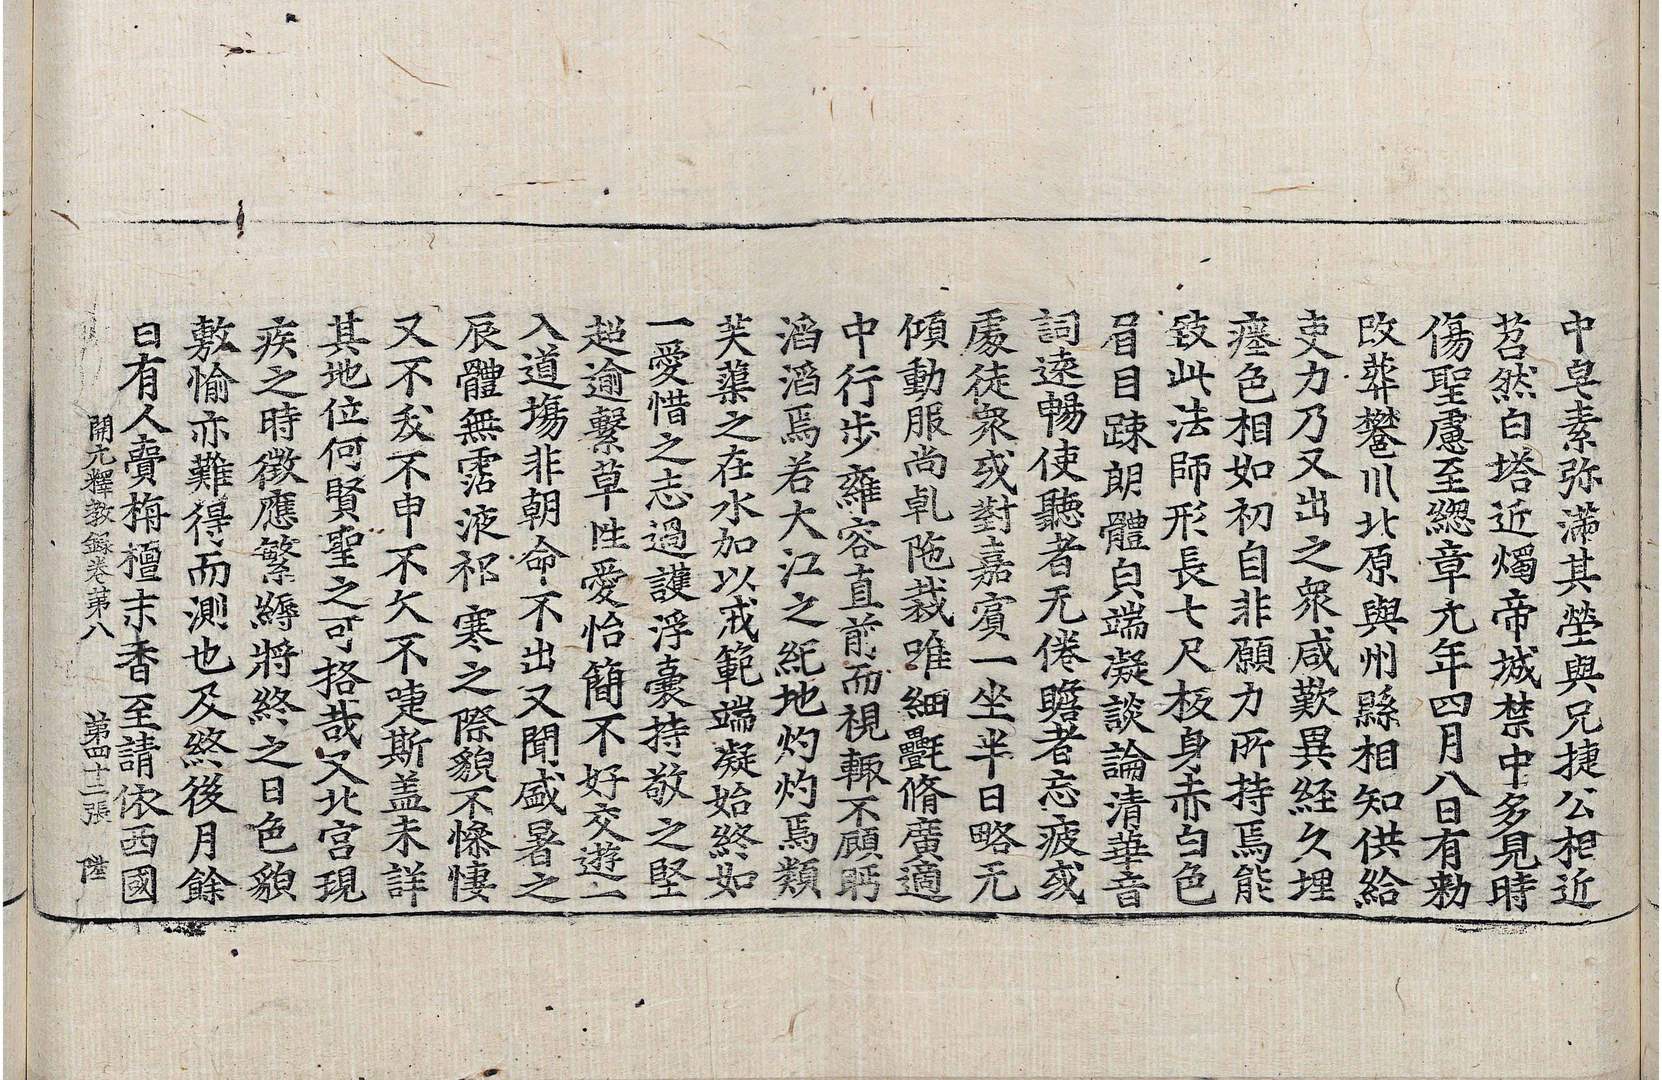 中皁素弥滿其塋與兄捷公相近
苕然白塔近燭帝城禁中多見時
傷聖慮至緫章元年四月八日有勑
改葬樊川北原與州縣相知供給
吏力乃又出之衆咸歎異経久埋
瘞色相如初自非願力所持焉能
致此法師形長七尺板身赤白色
眉目踈朗體皃端凝談論清華音
詞遠暢使聽者无倦瞻者忘疲或
處徒衆或對嘉賓一坐半日略无
傾動服尚乹陁裁唯細㲲脩廣適
中行步雍容直前而視輒不顧眄
滔滔焉若大江之紀地灼灼焉類
芙蕖之在水加以戒範端凝始終如
一愛惜之志過護浮囊持敬之堅
超逾繫草性愛怡簡不好交遊一
入道塲非朝命不出又聞盛暑之
辰體無霑液祁寒之際貌不慘悽
又不㐻不申不欠不嚏斯盖未詳
其地位何賢聖之可挌哉又北宫現
疾之時徵應繁縟將終之日色貌
敷愉亦難得而測也及終後月餘
日有人賷栴檀末香至請依西國
開元釋教錄卷第八 第四十二張 陞